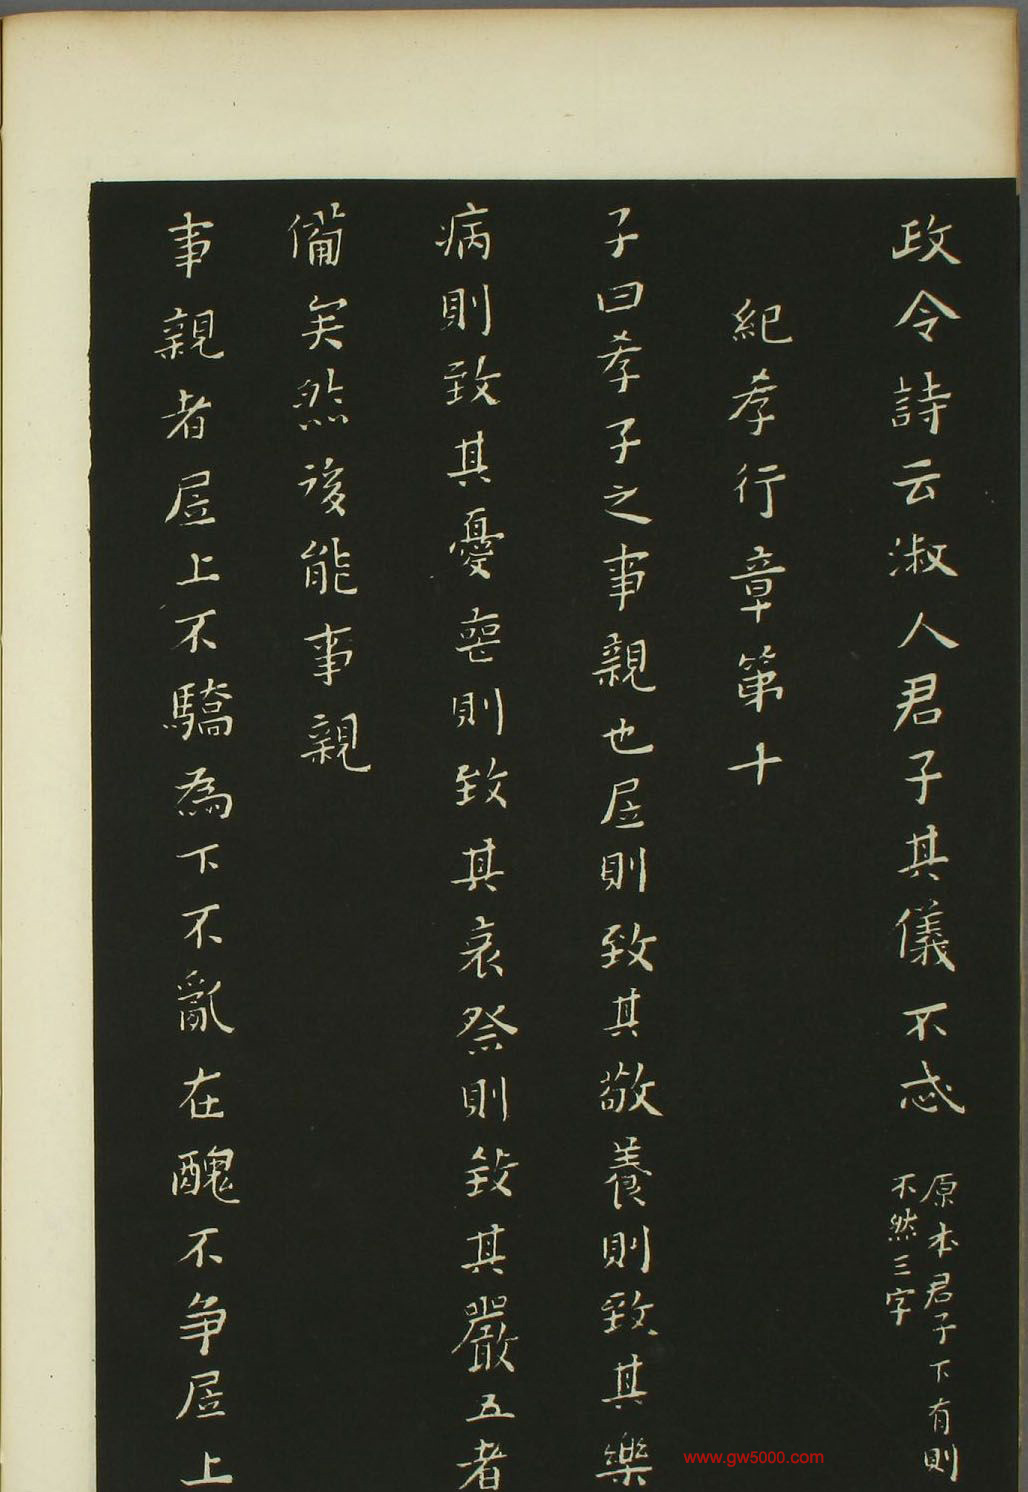 政令詩云淑人君子其儀不忒
原本君子下有則
不然三字
紀孝行章第十
子曰孝子之事親也居則致其敬養則致其樂
病則致其憂喪則致其哀祭則致其嚴五者
備矣然後能事親
事親者居上不驕為下不亂在醜不争居上
www.gw5000.com